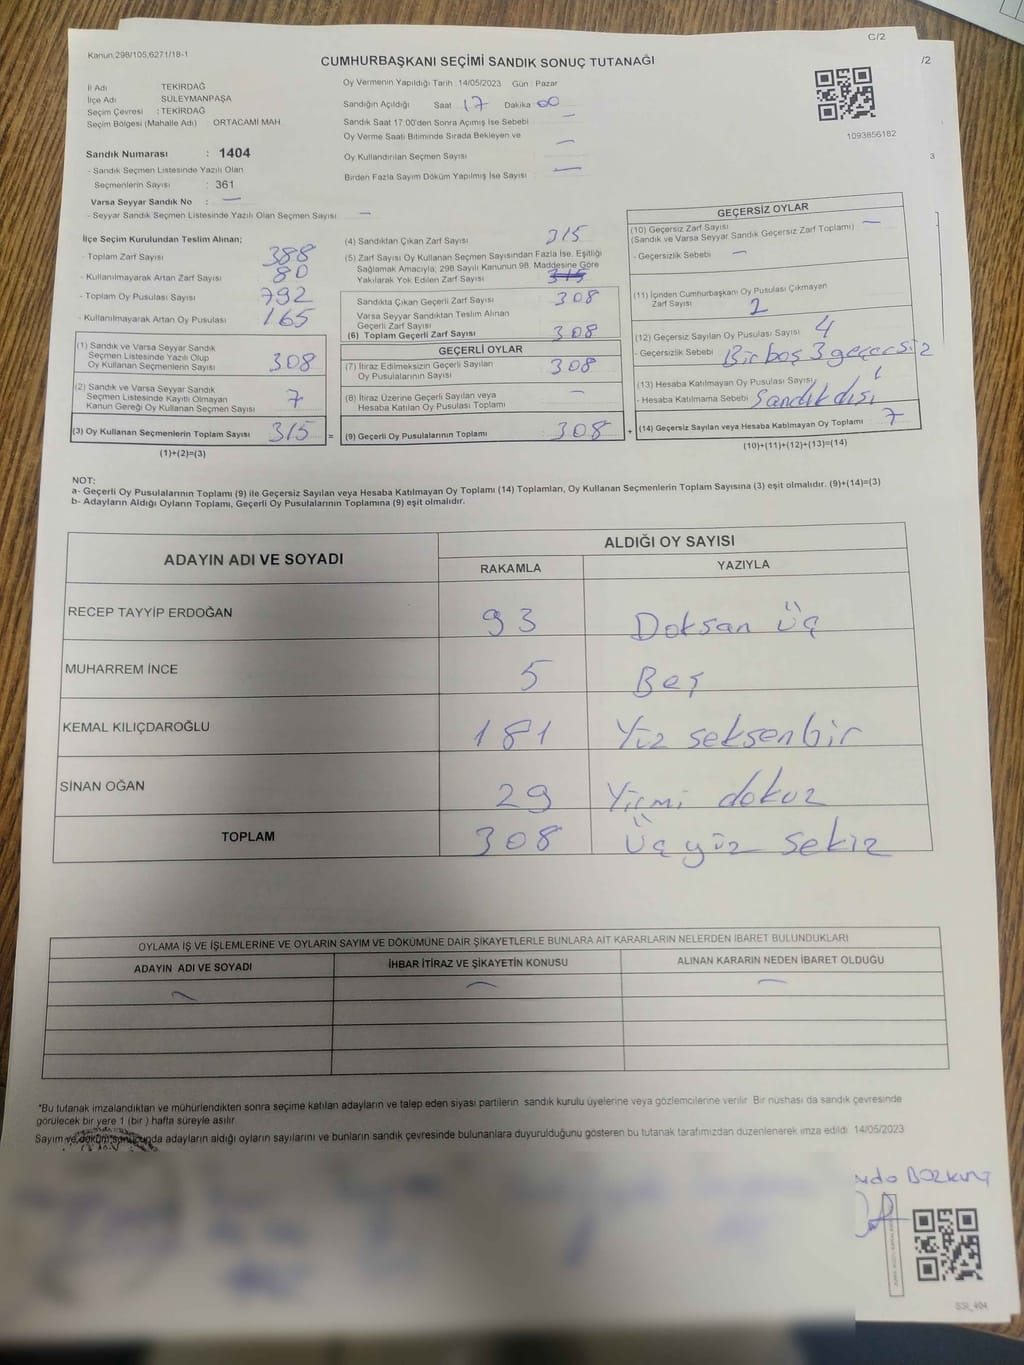 C/2
/2
Kanun,298/105,6271/18-1
CUMHURBAŞKANI SEÇİMİ SANDIK SONUÇ TUTANAĞI
İl Adı TEKİRDAĞ
İlçe Adı SÜLEYMANPAŞA
Seçim Çevresi : TEKİRDAĞ
Seçim Bölgesi (Mahalle Adı) : ORTACAMİ MAH
Sandık Numarası : 1404
- Sandık Seçmen Listesinde Yazılı Olan
Seçmenlerin Sayısı : 361
Varsa Seyyar Sandık No : —
- Seyyar Sandık Seçmen Listesinde Yazılı Olan Seçmen Sayısı : —
Oy Vermenin Yapıldığı Tarih : 14/05/2023 Gün : Pazar
Sandığın Açıldığı Saat 17 Dakika 00
Sandık Saat 17:00'den Sonra Açılmış İse Sebebi —
Oy Verme Saati Bitiminde Sırada Bekleyen ve
Oy Kullandırılan Seçmen Sayısı —
Birden Fazla Sayım Döküm Yapılmış İse Sayısı —
1093856182
3
İlçe Seçim Kurulundan Teslim Alınan;
- Toplam Zarf Sayısı 388
- Kullanılmayarak Artan Zarf Sayısı 80
- Toplam Oy Pusulası Sayısı 792
- Kullanılmayarak Artan Oy Pusulası 165
(1) Sandık ve Varsa Seyyar Sandık
Seçmen Listesinde Yazılı Olup
Oy Kullanan Seçmenlerin Sayısı 308
(2) Sandık ve Varsa Seyyar Sandık
Seçmen Listesinde Kayıtlı Olmayan
Kanun Gereği Oy Kullanan Seçmen Sayısı 7
(3) Oy Kullanan Seçmenlerin Toplam Sayısı 315 =
(1)+(2)=(3)
(4) Sandıktan Çıkan Zarf Sayısı 315
(5) Zarf Sayısı Oy Kullanan Seçmen Sayısından Fazla İse, Eşitliği
Sağlamak Amacıyla; 298 Sayılı Kanunun 98. Maddesine Göre
Yakılarak Yok Edilen Zarf Sayısı 315
Sandıkta Çıkan Geçerli Zarf Sayısı 308
Varsa Seyyar Sandıktan Teslim Alınan
Geçerli Zarf Sayısı
(6) Toplam Geçerli Zarf Sayısı 308
GEÇERLİ OYLAR
(7) İtiraz Edilmeksizin Geçerli Sayılan
Oy Pusulalarının Sayısı 308
(8) İtiraz Üzerine Geçerli Sayılan veya
Hesaba Katılan Oy Pusulası Toplamı —
(9) Geçerli Oy Pusulalarının Toplamı 308 +
GEÇERSİZ OYLAR
(10) Geçersiz Zarf Sayısı
(Sandık ve Varsa Seyyar Sandık Geçersiz Zarf Toplamı) —
- Geçersizlik Sebebi —
(11) İçinden Cumhurbaşkanı Oy Pusulası Çıkmayan
Zarf Sayısı 2
(12) Geçersiz Sayılan Oy Pusulası Sayısı 4
- Geçersizlik Sebebi Bir boş 3 geçersiz
(13) Hesaba Katılmayan Oy Pusulası Sayısı 1
- Hesaba Katılmama Sebebi Sandık dışı
(14) Geçersiz Sayılan veya Hesaba Katılmayan Oy Toplamı 7
(10)+(11)+(12)+(13)=(14)
NOT:
a- Geçerli Oy Pusulalarının Toplamı (9) ile Geçersiz Sayılan veya Hesaba Katılmayan Oy Toplamı (14) Toplamları, Oy Kullanan Seçmenlerin Toplam Sayısına (3) eşit olmalıdır. (9)+(14)=(3)
b- Adayların Aldığı Oyların Toplamı, Geçerli Oy Pusulalarının Toplamına (9) eşit olmalıdır.
ADAYIN ADI VE SOYADI ALDIĞI OY SAYISI
RAKAMLA YAZIYLA
RECEP TAYYİP ERDOĞAN 93 Doksan üç
MUHARREM İNCE 5 Beş
KEMAL KILIÇDAROĞLU 181 Yüz seksenbir
SİNAN OĞAN 29 Yirmi dokuz
TOPLAM 308 Üçyüz sekiz
OYLAMA İŞ VE İŞLEMLERİNE VE OYLARIN SAYIM VE DÖKÜMÜNE DAİR ŞİKAYETLERLE BUNLARA AİT KARARLARIN NELERDEN İBARET BULUNDUKLARI
ADAYIN ADI VE SOYADI İHBAR İTİRAZ VE ŞİKAYETİN KONUSU ALINAN KARARIN NEDEN İBARET OLDUĞU
— — —
*Bu tutanak imzalandıktan ve mühürlendikten sonra seçime katılan adayların ve talep eden siyasi partilerin sandık kurulu üyelerine veya gözlemcilerine verilir. Bir nüshası da sandık çevresinde
görülecek bir yere 1 (bir ) hafta süreyle asılır.
Sayım ve döküm sonucunda adayların aldığı oyların sayılarını ve bunların sandık çevresinde bulunanlara duyurulduğunu gösteren bu tutanak tarafımızdan düzenlenerek imza edildi. 14/05/2023
BOZKURT
SSI_404